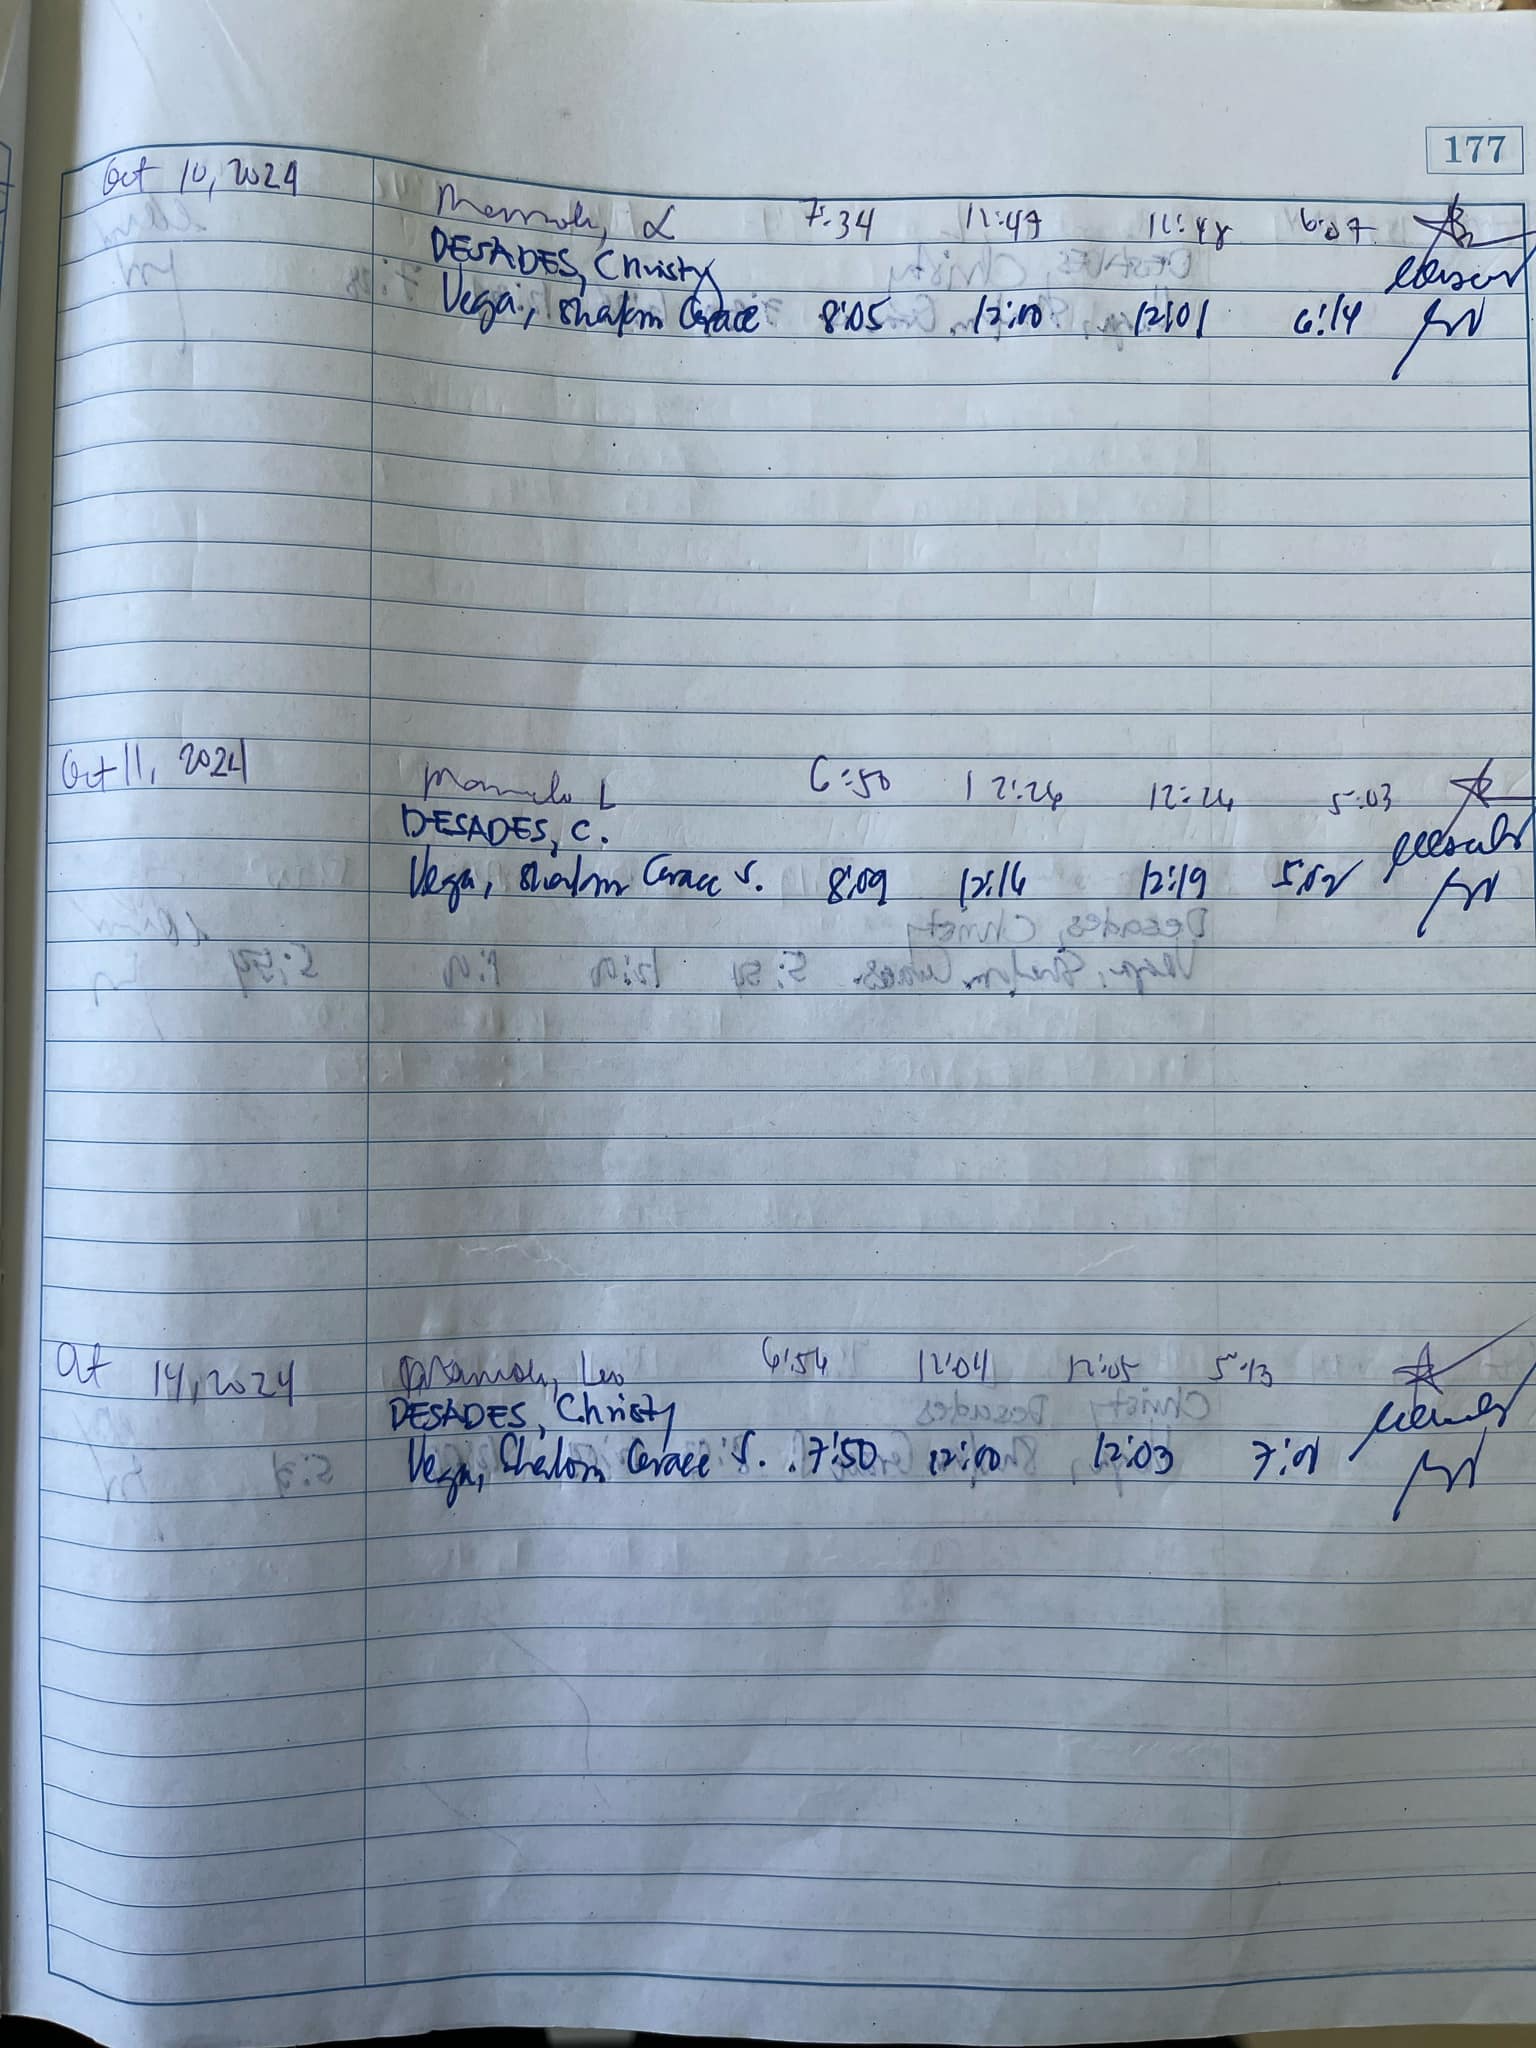 177
Oct 10, 2024
L 7:34 12:47 12:48 6:07
DESADES, Christy
Vega, Shalom Grace 8:05 12:00 12:01 6:14
Oct 11, 2024
L 6:50 12:26 12:26 5:03
DESADES, C.
Vega, Shalom Grace S. 8:09 12:16 12:19 5:02
Oct 14, 2024
Leo 6:56 12:04 12:05 5:13
DESADES, Christy
Vega, Shalom Grace S. 7:50 12:00 12:03 7:01